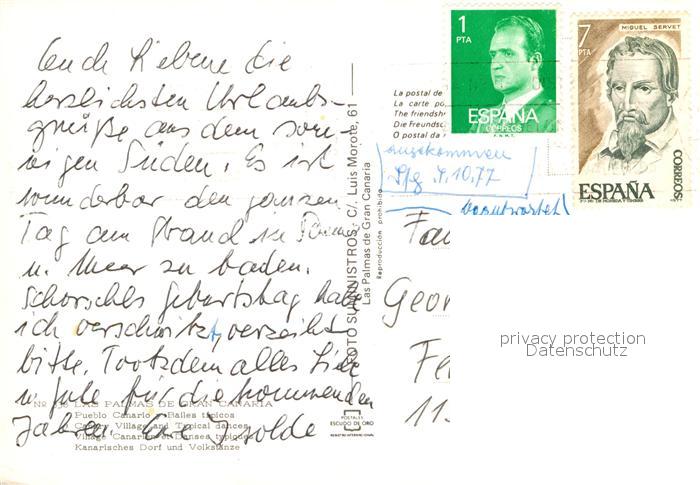 Euch Ihr Lieben die
herzlichsten Urlaubs-
grüße aus dem son-
nigen Süden. Es ist
wunderbar den ganzen
Tag am Strand in Sonne
u. Meer zu baden.
Schorschls Geburtstag habe
ich verschwitzt, verzeiht
bitte. Trotzdem alles Liebe
u. Gute für die kommenden
Jahre. Eure Isolde
Nº LAS PALMAS DE GRAN CANARIA
Pueblo Canario - Bailes típicos
Village and Typical dances
Village Canarien et Danses typiques
Kanarisches Dorf und Volkstänze
FOTO SUMINISTROS, C/. Luis Morote, 61
Las Palmas de Gran Canaria
Reproducción prohibida
POSTALES
ESCUDO DE ORO
REGISTRO INTERNACIONAL
La postal de
La carte po
The friendsh
Die Freundsc
O postal da
1
PTA
ESPAÑA
CORREOS
F.N.M.T.
7
PTA
MIGUEL SERVET
CORREOS
ESPAÑA
angekommen
9.10.77
beantwortet
Fa
Geor
Fe
11
privacy protection
Datenschutz